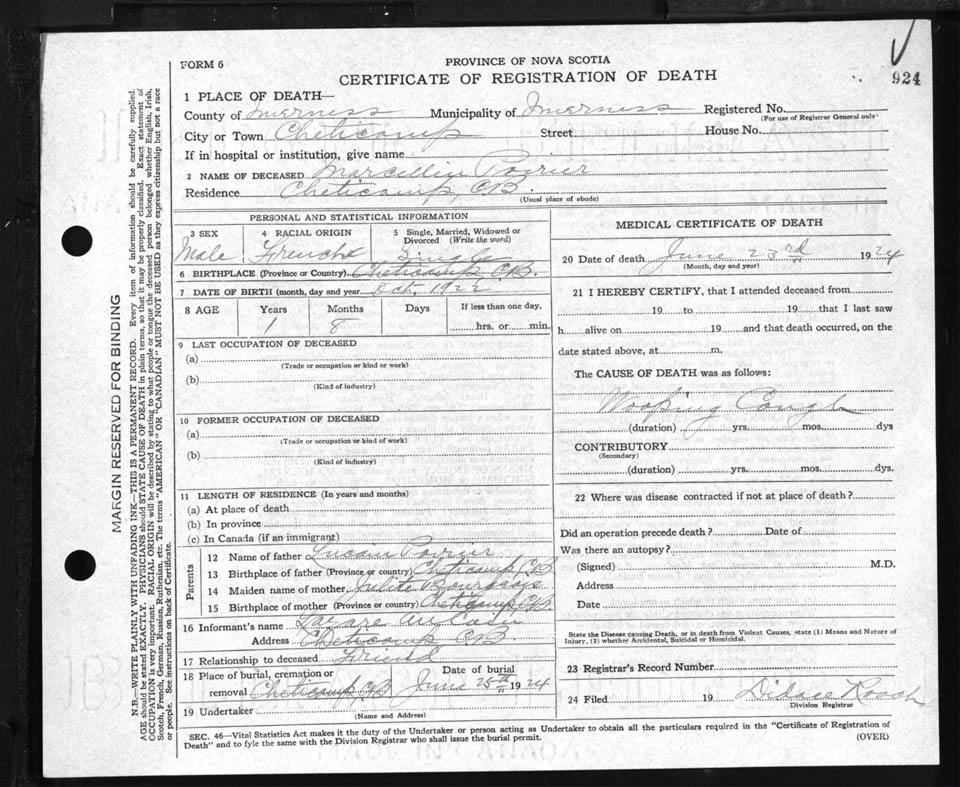 924
FORM 6
PROVINCE OF NOVA SCOTIA
CERTIFICATE OF REGISTRATION OF DEATH
1 PLACE OF DEATH—
County of Inverness Municipality of Inverness Registered No.
(For use of Registrar General only)
City or Town Cheticamp Street House No.
If in hospital or institution, give name
2 NAME OF DECEASED Marcellin Poirier
Residence Cheticamp, C.B.
(Usual place of abode)
MARGIN RESERVED FOR BINDING
N.B.—WRITE PLAINLY WITH UNFADING INK—THIS IS A PERMANENT RECORD. Every item of information should be carefully supplied.
AGE should be stated EXACTLY. PHYSICIANS should STATE CAUSE OF DEATH in plain terms, so that it may be properly classified. Exact statement of
OCCUPATION is very important. RACIAL ORIGIN will be described by stating to what people or tongue the deceased person belonged whether English, Irish,
Scotch, French, German, Russian, Ruthenian, etc. The terms "AMERICAN" OR "CANADIAN" MUST NOT BE USED as they express citizenship but not a race
or people. See instructions on back of Certificate.
PERSONAL AND STATISTICAL INFORMATION
3 SEX
Male
4 RACIAL ORIGIN
French
5 Single, Married, Widowed or
Divorced (Write the word)
Single
6 BIRTHPLACE (Province or Country) Cheticamp C.B.
7 DATE OF BIRTH (month, day and year Oct. 1922
8 AGE Years Months Days If less than one day,
1 8 hrs. or min.
9 LAST OCCUPATION OF DECEASED
(a)
(Trade or occupation or kind or work)
(b)
(Kind of industry)
10 FORMER OCCUPATION OF DECEASED
(a)
(Trade or occupation or kind of work)
(b)
(Kind of industry)
11 LENGTH OF RESIDENCE (In years and months)
(a) At place of death
(b) In province
(c) In Canada (if an immigrant)
Parents
12 Name of father Lucien Poirier
13 Birthplace of father (Province or country) Cheticamp CB
14 Maiden name of mother Julite Bourgeois
15 Birthplace of mother (Province or country) Cheticamp CB
16 Informant's name Lazare AuCoin
Address Cheticamp C.B.
17 Relationship to deceased Friend
18 Place of burial, cremation or Date of burial
removal Cheticamp CB June 25th 1924
19 Undertaker
(Name and Address)
MEDICAL CERTIFICATE OF DEATH
20 Date of death June 23rd 1924
(Month, day and year)
21 I HEREBY CERTIFY, that I attended deceased from
19 to 19 that I last saw
h alive on 19 and that death occurred, on the
date stated above, at m.
The CAUSE OF DEATH was as follows:
Wooping Cough
(duration) yrs. mos. dys
CONTRIBUTORY
(Secondary)
(duration) yrs. mos. dys.
22 Where was disease contracted if not at place of death?
Did an operation precede death? Date of
Was there an autopsy?
(Signed) M.D.
Address
Date
State the Disease causing Death, or in death from Violent Causes, state (1) Means and Nature of
Injury, (2) whether Accidental, Suicidal or Homicidal.
23 Registrar's Record Number
24 Filed 19 Didace Roach
Division Registrar
SEC. 46—Vital Statistics Act makes it the duty of the Undertaker or person acting as Undertaker to obtain all the particulars required in the "Certificate of Registration of
Death" and to fyle the same with the Division Registrar who shall issue the burial permit. (OVER)